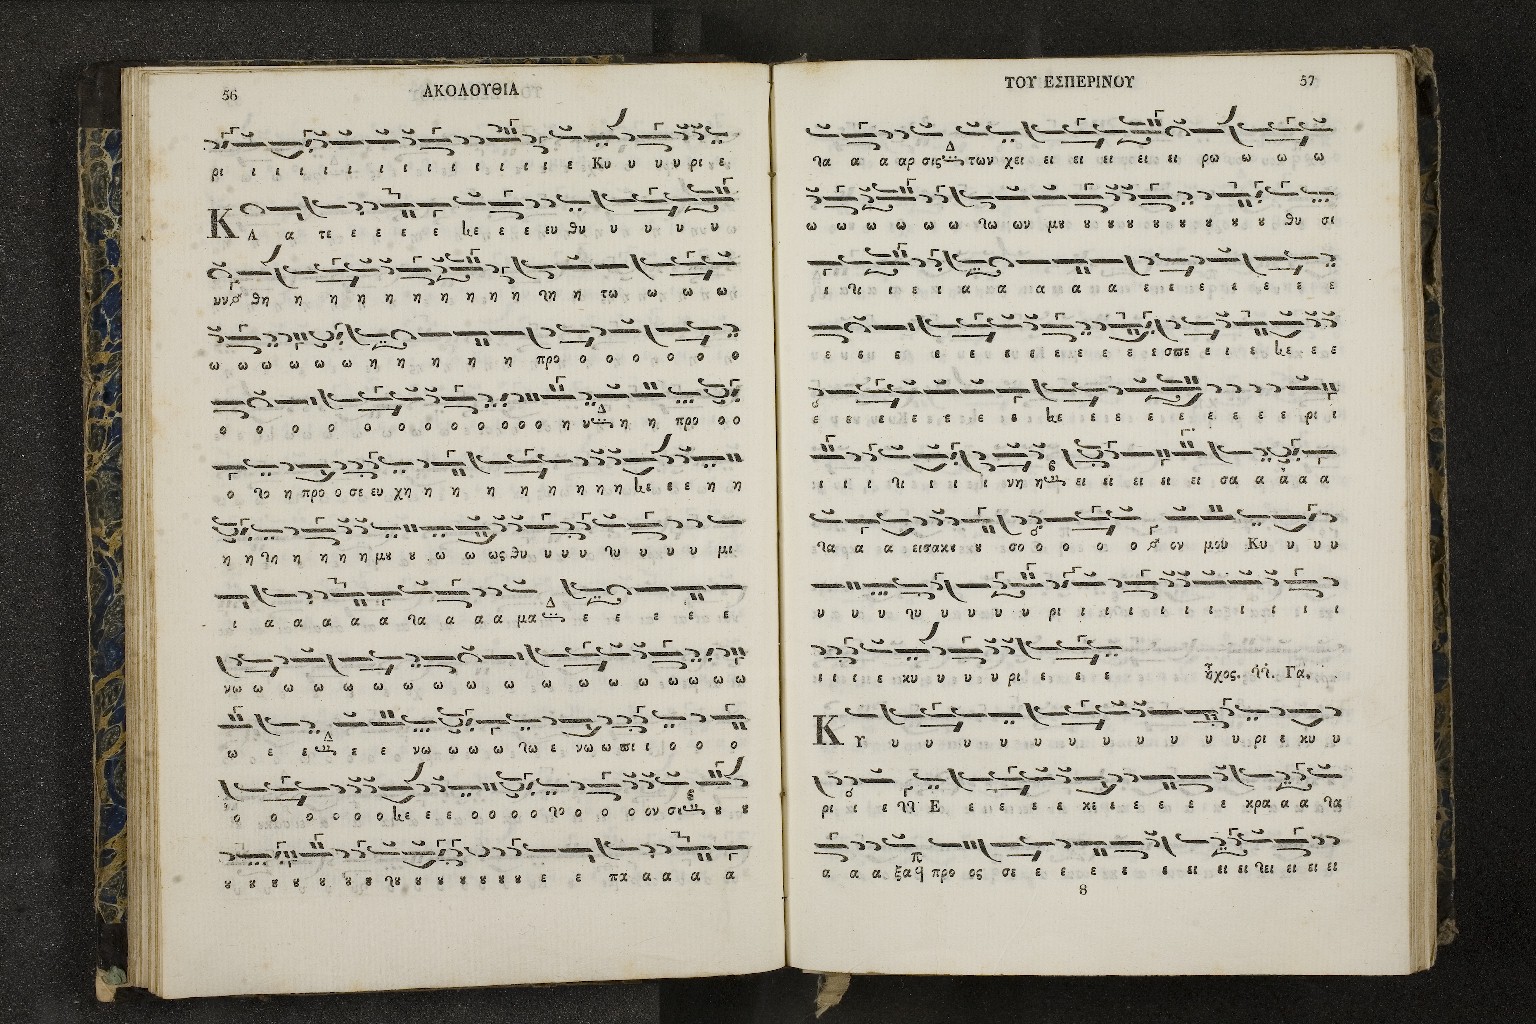 56
ΑΚΟΛΟΥΘΙΑ
ρι ι ι ι ι ι ι ι ι ι ι ι ι ι ε Κυ υ υ υ ρι ε
ΚΑ α τε ε ε ε ε κε ε ε ευ θυ υ υ υ υ υ
υν θη η η η η η η η η η η τη η τω ω ω ω
ω ω ω ω ω ω η η η η η η προ ο ο ο ο ο ο
ο ο ο ο ο ο ο ο ο ο ο ο ο η υ η η προ ο ο
ο το η προ ο σε ευ χη η η η η η η η η κε ε ε η η
η η τη η η η η μου ου ω ω ως θυ υ υ υ τυ υ υ υ υ μι
ι α α α α α τα α α α μα ε ε ε ε ε
νω ω ω ω ω ω ω ω ω ω ω ω ω ω ω ω ω ω
ω ε ε ε ε νω ω ω ω τω ε νω ω πι ι ο ο ο
ο ο ο ο ο ο κε ε ε ο ο ο ο το ο ο ο ον σου ου ου
ου ου ου ου ου ου ου του ου ου ου ου ου ου ε ε πα α α α α
ΤΟΥ ΕΣΠΕΡΙΝΟΥ
57
τα α α αρ σις των χει ει ει ει ει ει ρω ω ω ω
ω ω ω ω ω ω τω ων μου ου ου ου ου ου ου ου ου ου θυ σι
ι τι ι ε ι α α α α α α ε ε ε ε ε ε ε
ε ε ε ε ε ε ε ε ε ε ε ε ε ε εσπε ε ι ε κε ε ε
ε ε ε ε ε ε ε ε κε ε ε ε ε ε ε ε ε ε ε ρι ι
ι ι ι τι ι ι ι νη η ει ει ει ει ει σα α α α α
τα α α εισακου ου σο ο ο ο ο ον μου Κυ υ υ υ
υ υ υ τυ υ υ υ υ ρι ι ι ι ι ι ι ι ι ι ι ι
ι ι ι ε κυ υ υ υ υ ρι ε ε ε
ἦχος. Γα.
ΚΥ υ υ υ υ υ υ υ υ υ υ υ ρι ε κυ υ
ρι ι ε Ε ε ε ε ε κε ε ε ε ε ε κρα α α τα
α α α ξα προ ος σε ε ε ε ε ε ε ει ει ει τει ει ει ει
8